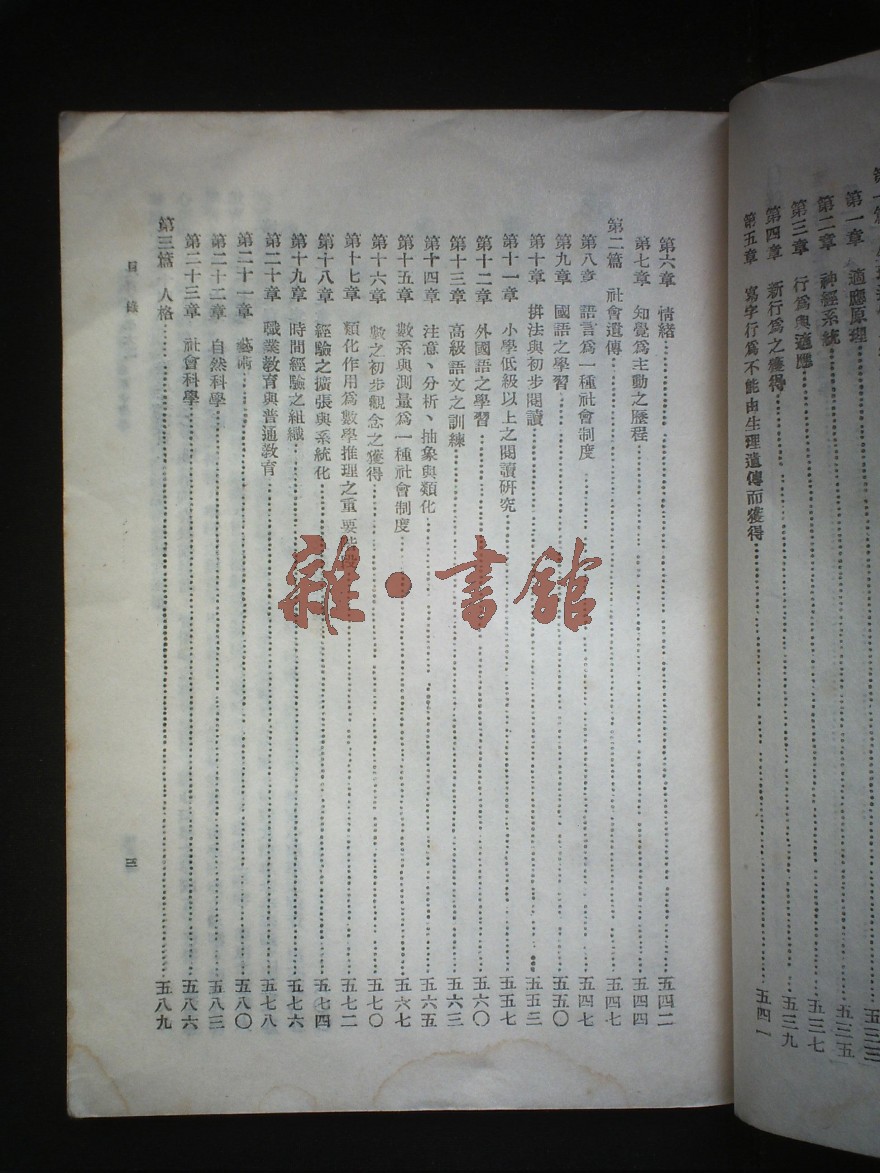 第一章　適應原理
第二章　神經系統……五三五
第三章　行爲與適應……五三七
第四章　新行爲之獲得……五三九
第五章　寫字行爲不能由生理遺傳而獲得……五四一
第六章　情緒……五四二
第七章　知覺爲主動之歷程……五四四
第二篇　社會遺傳……五四七
第八章　語言爲一種社會制度……五四七
第九章　國語之學習……五五〇
第十章　拼法與初步閱讀……五五三
第十一章　小學低級以上之閱讀研究……五五七
第十二章　外國語之學習……五六〇
第十三章　高級語文之訓練……五六三
第十四章　注意、分析、抽象與類化……五六五
第十五章　數系與測量爲一種社會制度……五六七
第十六章　數之初步觀念之獲得……五七〇
第十七章　類化作用爲數學推理之重要……五七二
第十八章　經驗之擴張與系統化……五七四
第十九章　時間經驗之組織……五七六
第二十章　職業教育與普通教育……五七八
第二十一章　藝術……五八〇
第二十二章　自然科學……五八三
第二十三章　社會科學……五八六
第三篇　人格……五八九
目錄
三
雜·書館